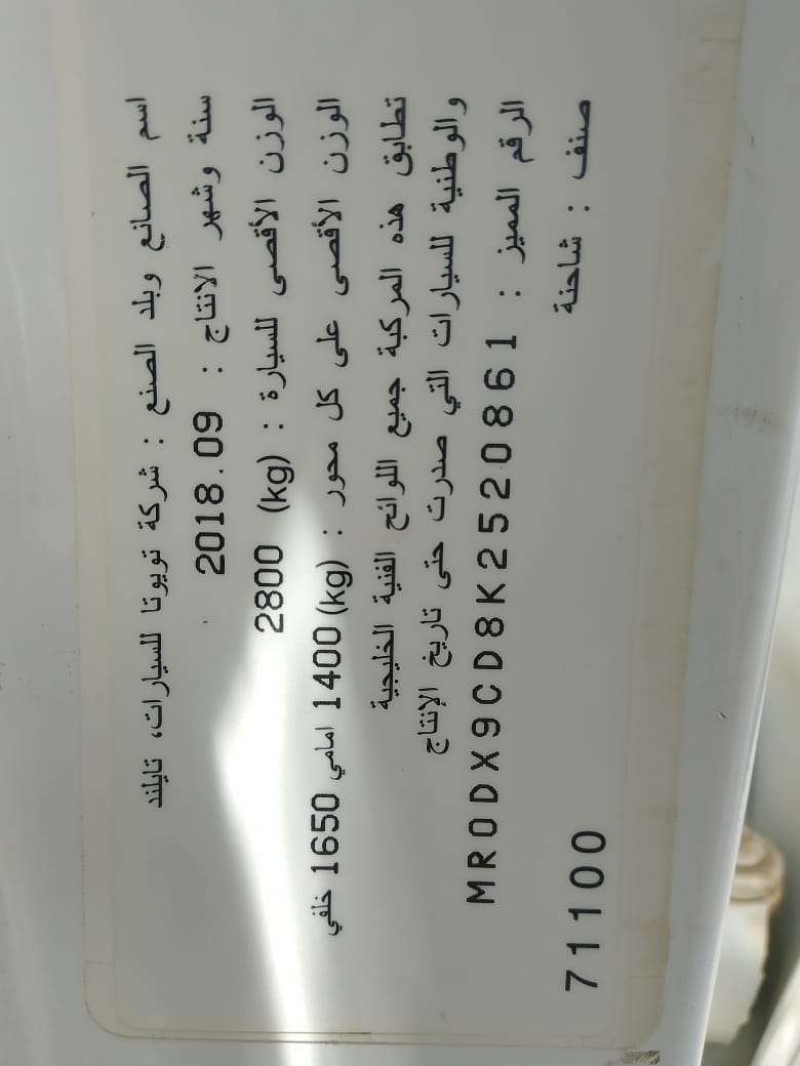 اسم الصانع وبلد الصنع : شركة تويوتا للسيارات، تايلند
سنة وشهر الانتاج : 2018.09
الوزن الأقصى للسيارة : 2800 (kg)
الوزن الأقصى على كل محور : 1400(kg) امامي 1650 خلفي
تطابق هذه المركبة جميع اللوائح الفنية الخليجية
والوطنية للسيارات التي صدرت حتى تاريخ الإنتاج
الرقم المميز : MR0DX9CD8K2520861
صنف : شاحنة
71100